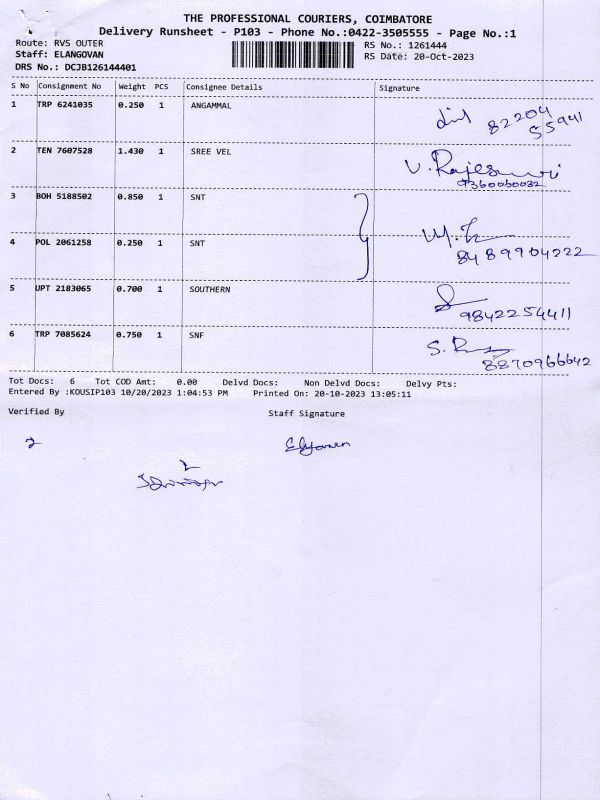 THE PROFESSIONAL COURIERS, COIMBATORE
Delivery Runsheet - P103 - Phone No.:0422-3505555 - Page No.:1
Route: RVS OUTER RS No.: 1261444
Staff: ELANGOVAN RS Date: 20-Oct-2023
DRS No.: DCJB126144401
S No Consignment No Weight PCS Consignee Details Signature
1 TRP 6241035 0.250 1 ANGAMMAL
82204
55941
2 TEN 7607528 1.430 1 SREE VEL V. Rajeswari
9360060082
3 BOH 5188502 0.850 1 SNT
4 POL 2061258 0.250 1 SNT
8489904222
5 UPT 2183065 0.700 1 SOUTHERN
9842254411
6 TRP 7085624 0.750 1 SNF
8870966642
Tot Docs: 6 Tot COD Amt: 0.00 Delvd Docs: Non Delvd Docs: Delvy Pts:
Entered By :KOUSIP103 10/20/2023 1:04:53 PM Printed On: 20-10-2023 13:05:11
Verified By Staff Signature
2